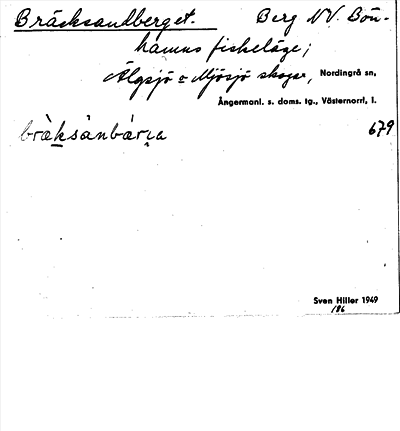 Bräcksandberget. Berg NV. Bön-
hamns fiskeläge;
Älgsjö o Mjösjö skogar, Nordingrå sn,
Ångermanl. s. doms. tg., Västernorrl. l.
679
Sven Hiller 1949
186